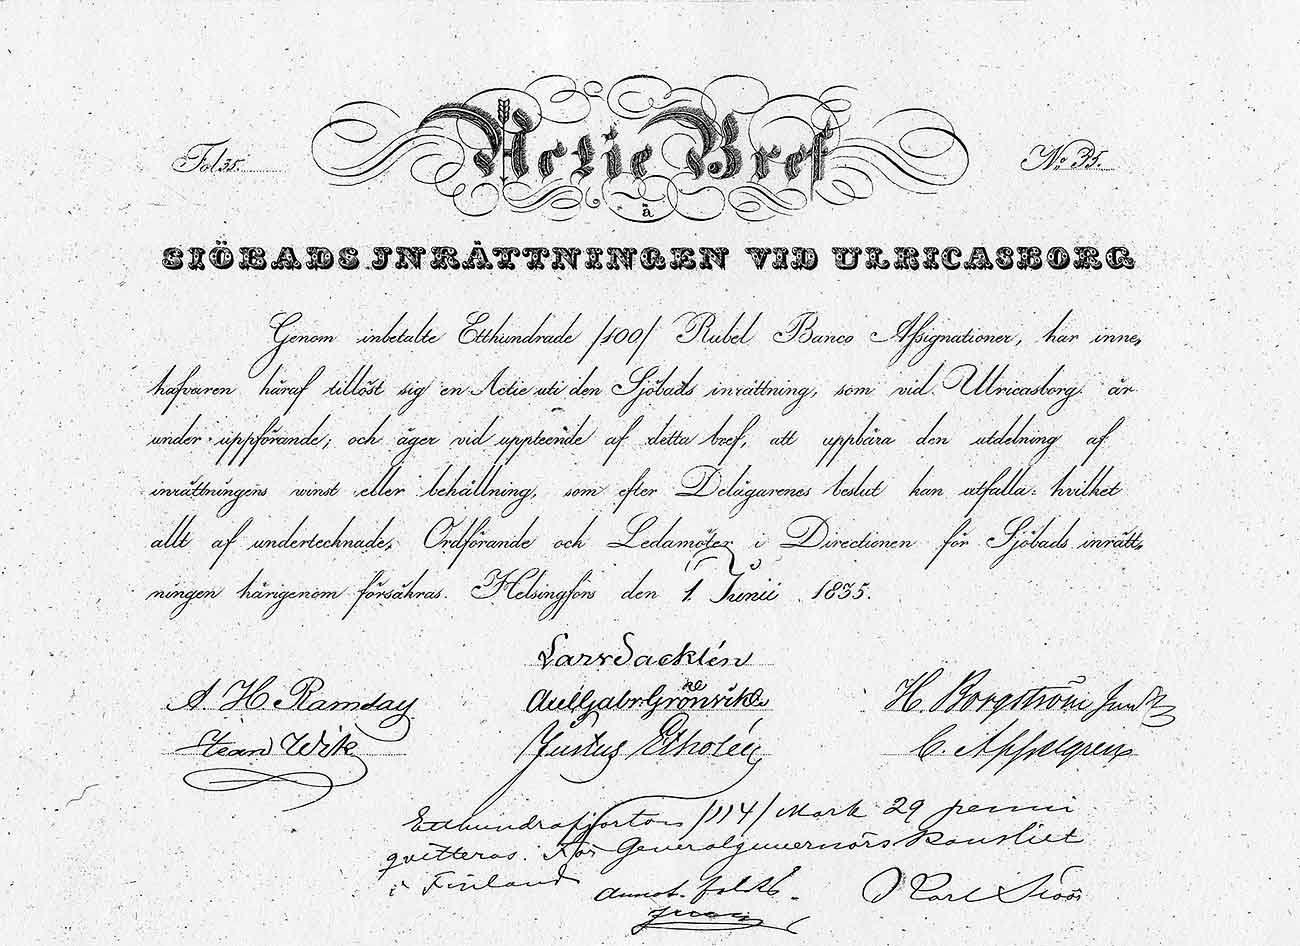 Fol 35.
Actie Bref
No 35.
à
SJÖBADS INRÄTTNINGEN VID ULRICASBORG
Genom inbetalte Etthundrade /100/ Rubel Banco Assignationer, har inne,
hafvaren häraf tillöst sig en Actie uti den Sjöbads inrättning, som vid Ulricasborg är
under uppförande; och äger vid uppteende af detta bref, att uppbära den utdelning af
inrättningens vinst eller behållning, som efter Delägarenes beslut kan utfalla: hvilket
allt af undertecknade, Ordförande och Ledamöter i Directionen för Sjöbads inrätt,
ningen härigenom försäkras. Helsingfors den 1. Junii 1835.
Lars Sacklén
A. H. Ramsay
H. Borgström Jun
Jean Wik
Justus Etholén
C. Appelgren
Etthundrafjorton /114/ Mark 29 penni
qvitteras. För Generalguvernörskansliet
i Finland
Karl